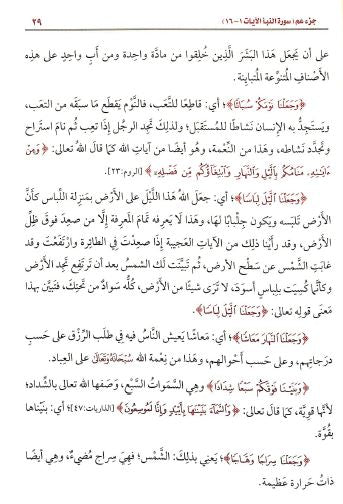 جزء عم (سورة النبأ الآيات ١-١٦) ٢٩
على أن يَجعَل هَذا البَشَرَ الَّذين خُلِقوا من مادَّة واحِدة ومن أَبٍ واحِدٍ على هذه
الأَصنافِ المُتنوِّعة المُتبايِنة.
﴿وَجَعَلْنَا نَوْمَكُمْ سُبَاتًا﴾؛ أي: قاطِعًا للتَّعب، فالنَّوم يَقطَع ما سبَقه من التعَب،
ويَستَجِدُّ به الإنسان نَشاطًا للمُستَقبَل؛ ولذلِكَ تجِد الرجُل إذا تعِب ثُم نام استَراح
وتجَدَّد نَشاطه، وهذا من النِّعمة، وهو أيضًا من آيات الله كما قال الله تعالى: ﴿وَمِنْ
ءَايَٰتِهِۦ مَنَامُكُم بِٱلَّيْلِ وَٱلنَّهَارِ وَٱبْتِغَآؤُكُم مِّن فَضْلِهِۦ﴾ [الروم:٢٣].
﴿وَجَعَلْنَا ٱلَّيْلَ لِبَاسًا﴾؛ أي: جعَل اللهُ هَذا اللَّيْلَ على الأَرْض بمَنزِلة اللِّباس كأَنَّ
الأَرْض تَلبَسه ويَكون جِلْبابًا لها، وهذا لا يَعرِفه تَمامَ المَعرِفة إلَّا من صعِدَ فوقَ ظِلِّ
الأَرْض، وقد رأَيْنا ذلك من الآيات العَجيبة إذا صعِدْتَ في الطائِرة وارْتَفَعْتَ وقد
غابَتِ الشَّمْس عن سَطْح الأَرض، ثُم تَبيَّنَت لك الشمسُ بعد أن تَرتَفِع تجِد الأَرْضَ
وكأنَّما كُسِيَت بلِباسٍ أَسوَدَ، لا تَرَى شيئًا من الأَرْض، كُلُّه سَوادٌ من تَحتِكَ، فتَبيَّن بهذا
مَعنَى قولِه تعالى: ﴿وَجَعَلْنَا ٱلَّيْلَ لِبَاسًا﴾.
﴿وَجَعَلْنَا ٱلنَّهَارَ مَعَاشًا﴾؛ أي: مَعاشًا يَعيش النَّاسُ فيه في طلَب الرِّزْق على حسَبِ
درَجاتِهم، وعلى حسَبِ أَحْوالِهم، وهَذا من نِعْمة الله سُبْحَانَهُ وَتَعَالَىٰ على العِباد.
﴿وَبَنَيْنَا فَوْقَكُمْ سَبْعًا شِدَادًا﴾ وهِي السَّمَواتُ السَّبْع، وَصَفها الله تعالى بالشِّداد؛
لأنَّها قوِيَّة، كما قال تعالى: ﴿وَٱلسَّمَآءَ بَنَيْنَٰهَا بِأَيْي۟دٍ وَإِنَّا لَمُوسِعُونَ﴾ [الذاريات:٤٧]؛ أي: بنَيْناها
بقُوَّة.
﴿وَجَعَلْنَا سِرَاجًا وَهَّاجًا﴾؛ يَعنِي بذلِكَ: الشَّمْس؛ فهِيَ سِراج مُضيءٌ، وهي أيضًا
ذاتُ حَرارة عَظيمة.